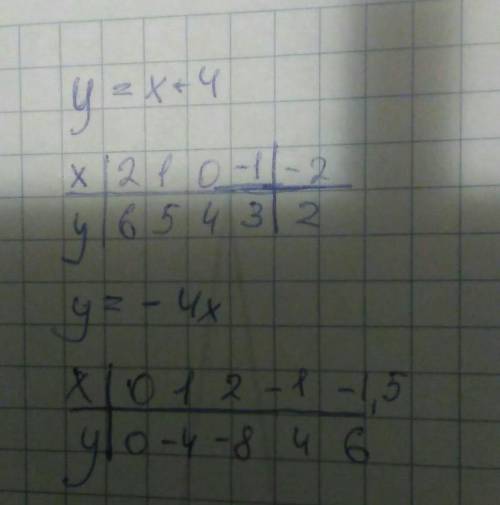 y = x + 4
x | 2 1 0 -1 | -2
y | 6 5 4 3 | 2
y = - 4x
x | 0 1 2 -1 -1,5
y | 0 -4 -8 4 6